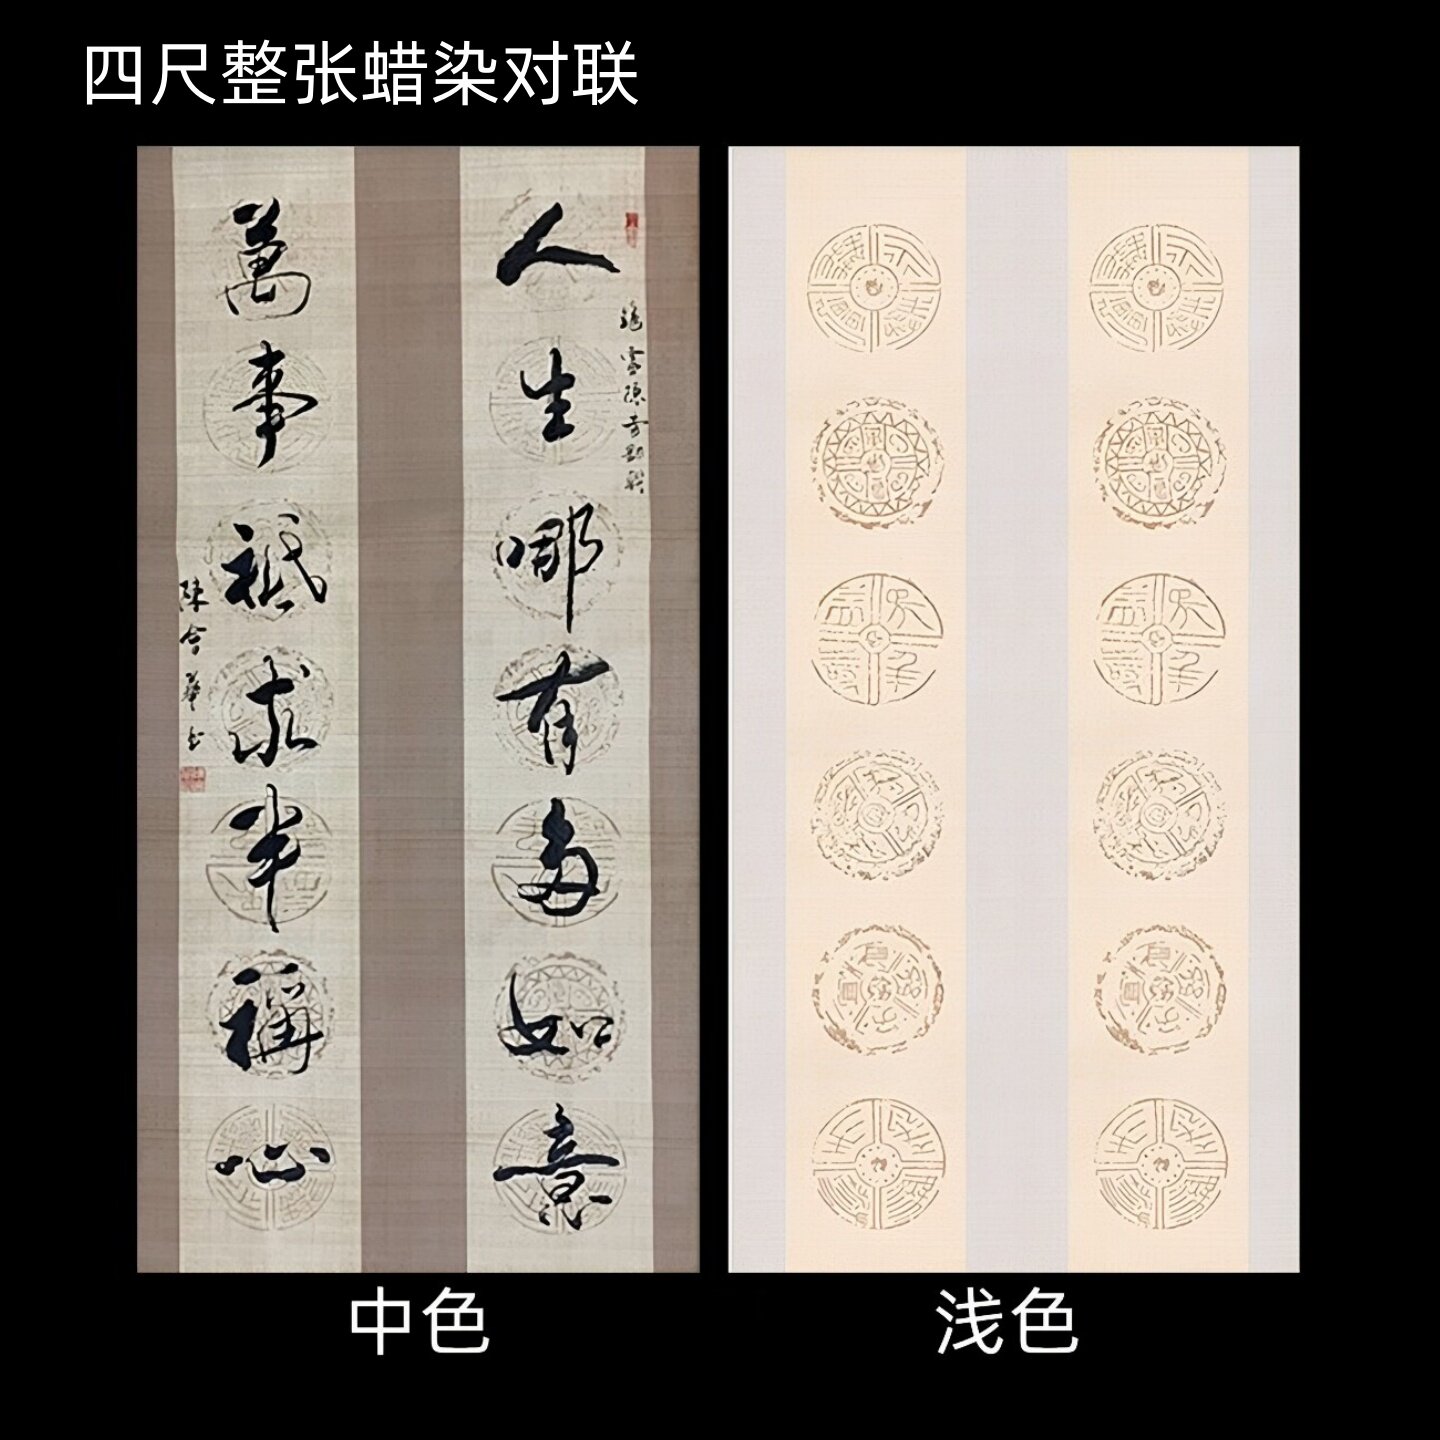 四尺整张蜡染对联
人生哪有多如意
萬事祗求半稱心
中色
浅色